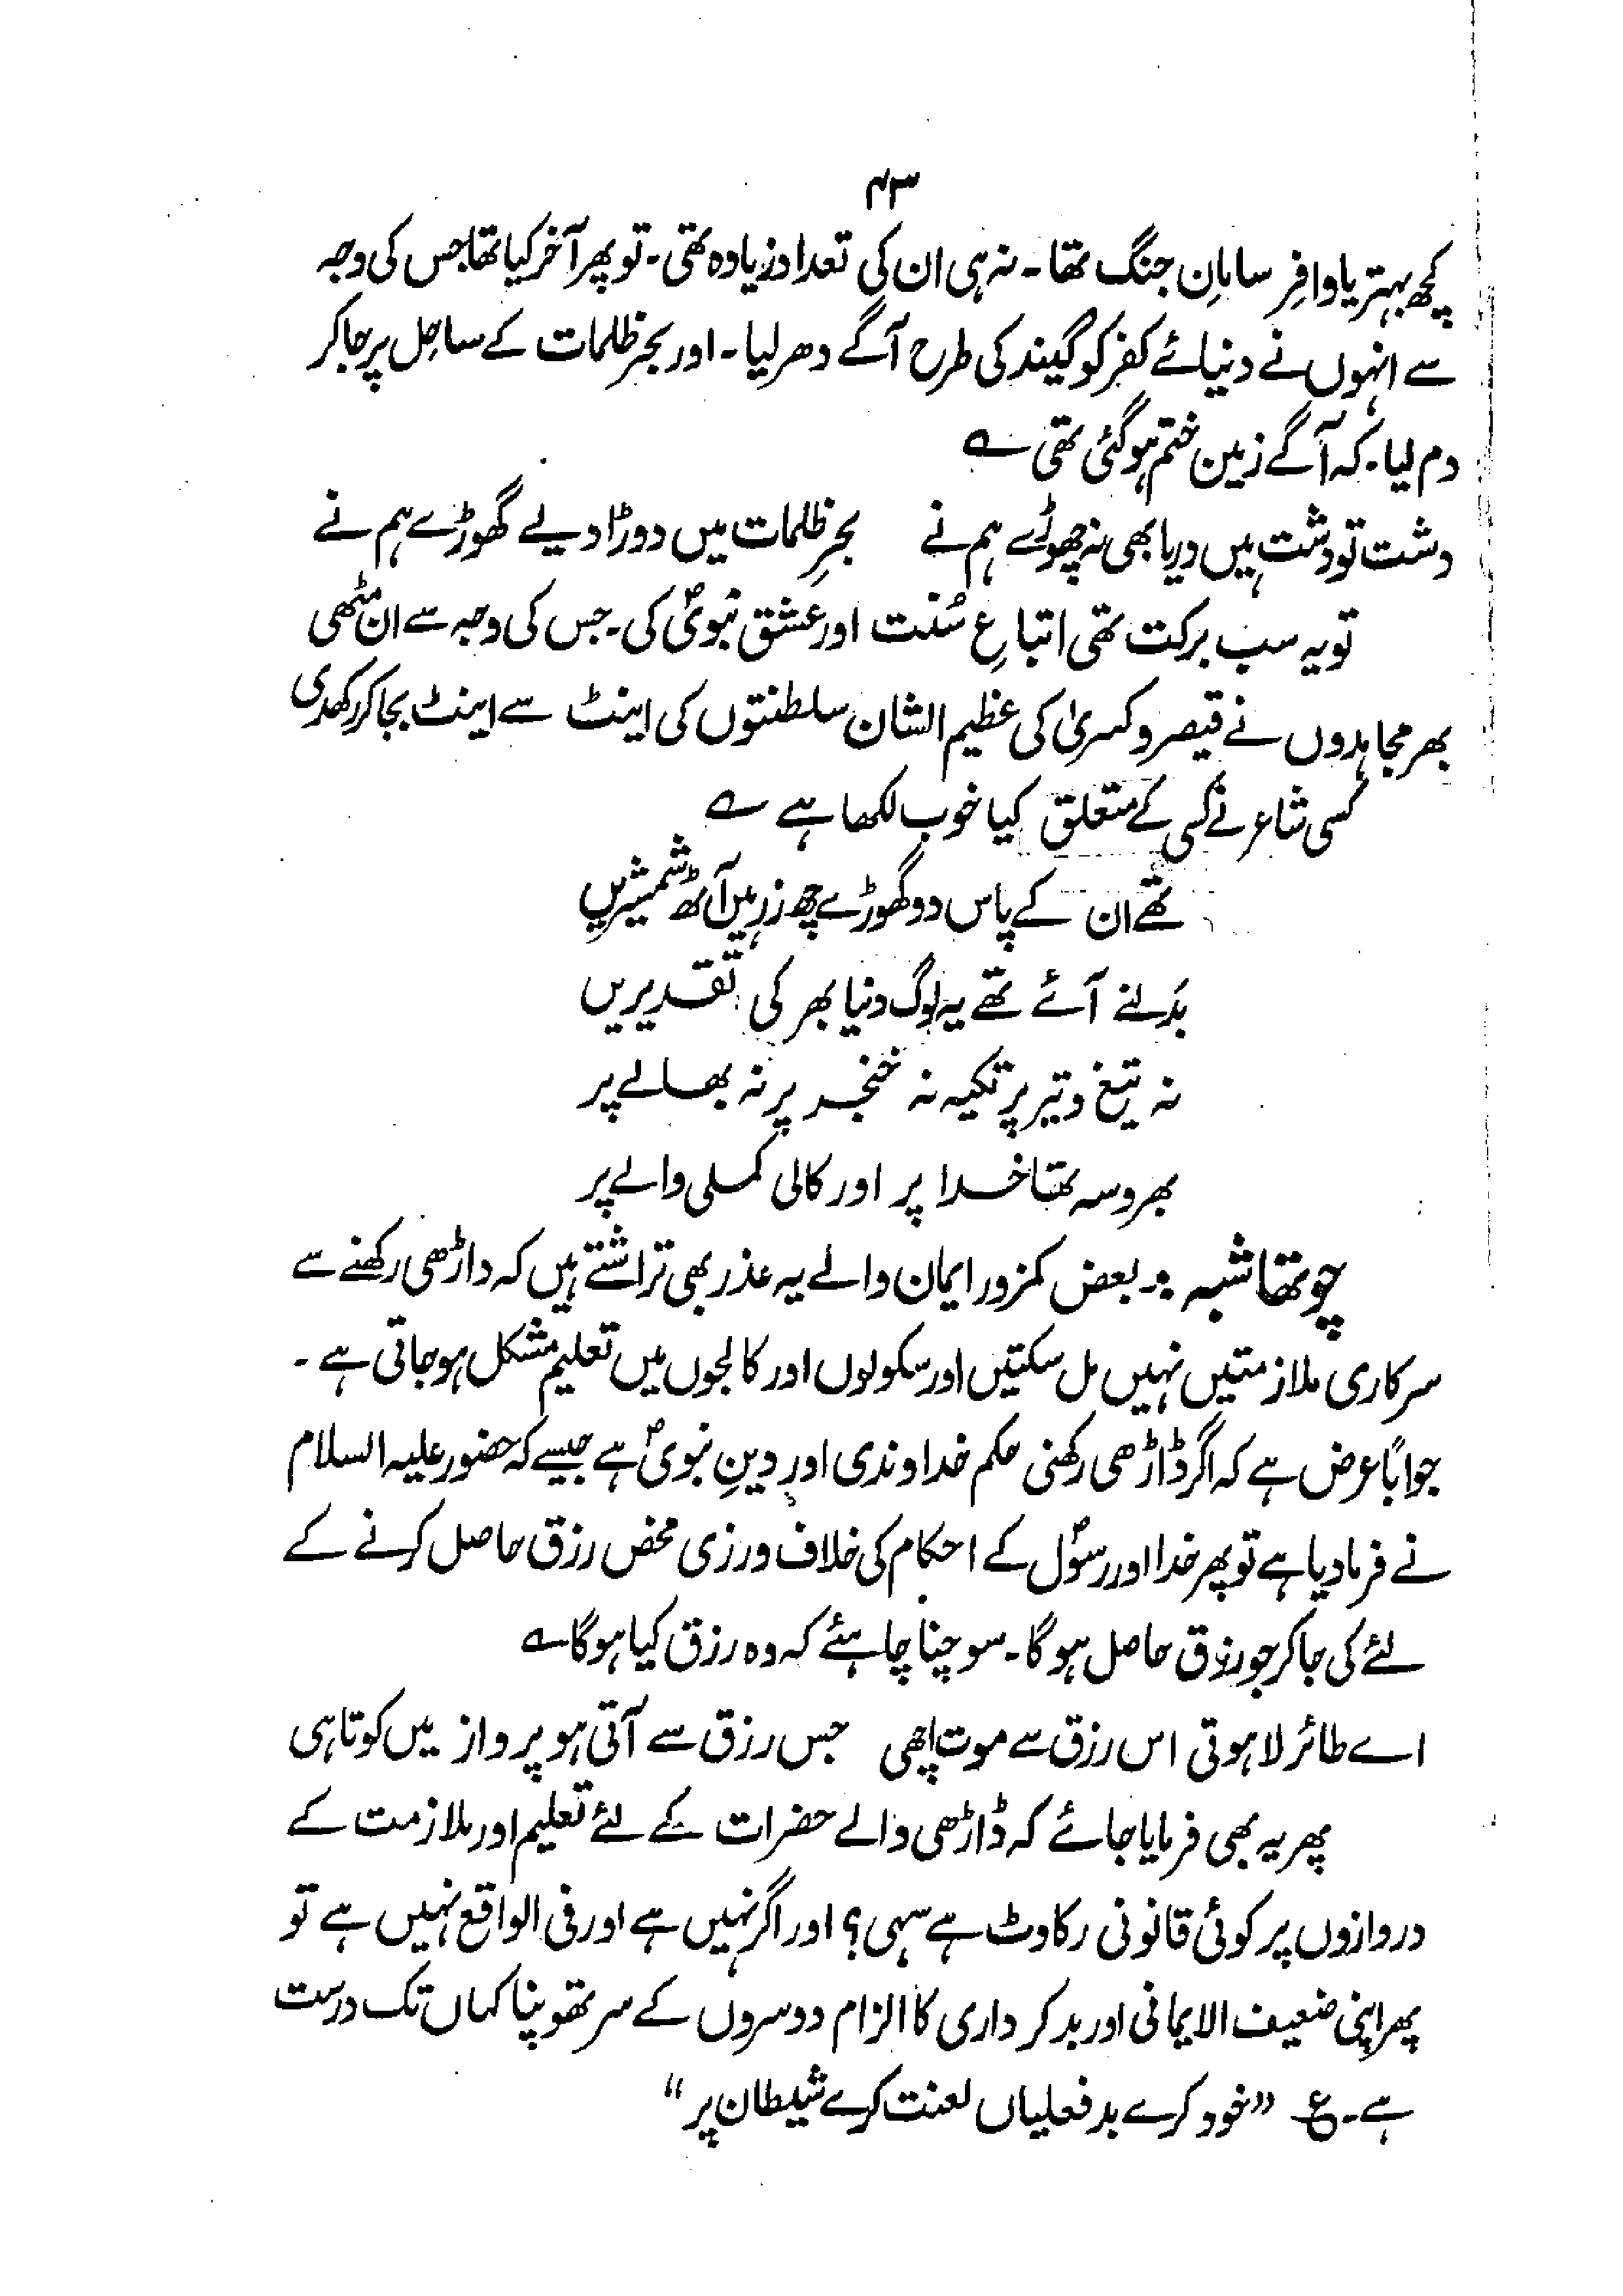 ۴۳
کچھ بہتر یا وافِر سامانِ جنگ تھا۔ نہ ہی ان کی تعداد زیادہ تھی۔ تو پھر آخر کیا تھا جس کی وجہ
سے انہوں نے دنیائے کفر کو گیند کی طرح آگے دھر لیا۔ اور بحرِ ظلمات کے ساحِل پر جا کر
دم لیا۔ کہ آگے زمین ختم ہو گئی تھی ؎
دشت تو دشت ہیں دریا بھی نہ چھوڑے ہم نے بحرِ ظلمات میں دوڑا دیے گھوڑے ہم نے
تو یہ سب برکت تھی اتباعِ سُنت اور عشق نبویؐ کی۔ جس کی وجہ سے ان مٹھی
بھر مجاہدوں نے قیصر و کسریٰ کی عظیم الشان سلطنتوں کی اینٹ سے اینٹ بجا کر رکھدی
کسی شاعر نے کسی کے متعلق کیا خوب لکھا ہے ؎
تھے ان کے پاس دو گھوڑے چھ زرہیں آٹھ شمشیریں
بدلنے آئے تھے یہ لوگ دنیا بھر کی تقدیریں
نہ تیغ و تیر پر تکیہ نہ خنجر پر نہ بھالے پر
بھروسہ تھا خدا پر اور کالی کملی والے پر
چوتھا شبہ :۔ بعض کمزور ایمان والے یہ عذر بھی تراشتے ہیں کہ داڑھی رکھنے سے
سرکاری ملازمتیں نہیں مل سکتیں اور سکولوں اور کالجوں میں تعلیم مشکل ہو جاتی ہے۔
جواباً عرض ہے کہ اگر ڈاڑھی رکھنی حکم خداوندی اور دینِ نبویؐ ہے جیسے کہ حضور علیہ السلام
نے فرما دیا ہے تو پھر خدا اور رسولؐ کے احکام کی خلاف ورزی محض رزق حاصل کرنے کے
لئے کی جا کر جو رزق حاصل ہو گا۔ سوچنا چاہئے کہ وہ رزق کیا ہو گا ؎
اے طائر لاہوتی اس رزق سے موت اچھی جس رزق سے آتی ہو پرواز میں کوتاہی
پھر یہ بھی فرمایا جائے کہ ڈاڑھی والے حضرات کے لئے تعلیم اور ملازمت کے
دروازوں پر کوئی قانونی رکاوٹ ہے سہی؟ اور اگر نہیں ہے اور فی الواقع نہیں ہے تو
پھر اپنی ضعیف الایمانی اور بدکرداری کا الزام دوسروں کے سر تھوپنا کہاں تک درست
ہے۔ ع "خود کرے بدفعلیاں لعنت کرے شیطان پر"